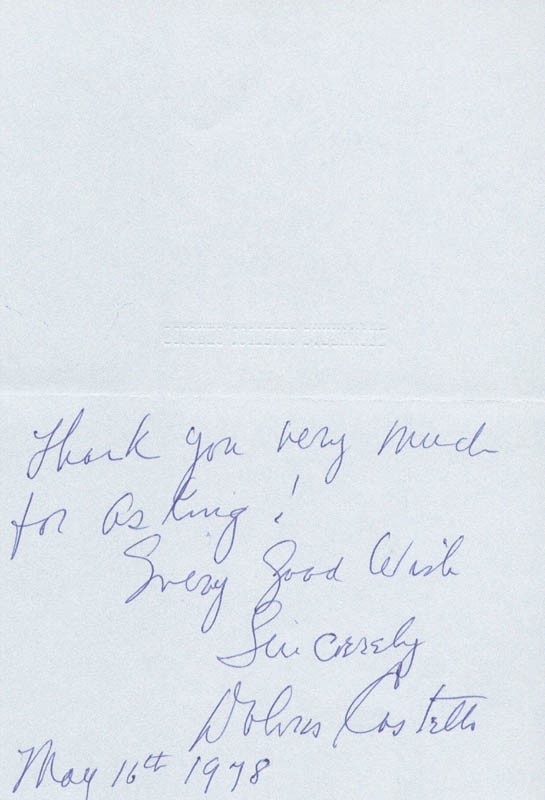 Thank you very much
for asking!
Every Good Wish
Sincerely
Dolores Costello
May 16th 1978